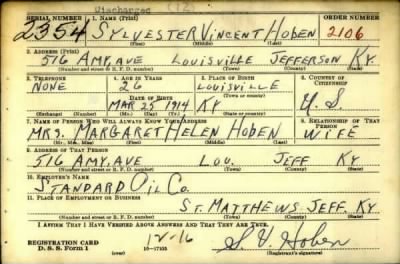 Discharged (12)
SERIAL NUMBER 1. NAME (Print) ORDER NUMBER
2354 SYLVESTER VINCENT HOBEN 2106
(First) (Middle) (Last)
2. ADDRESS (Print)
516 AMY, AVE LOUISVILLE JEFFERSON KY.
(Number and street or R. F. D. number) (Town) (County) (State)
3. TELEPHONE 4. AGE IN YEARS 5. PLACE OF BIRTH 6. COUNTRY OF CITIZENSHIP
NONE 26 LOUISVILLE
DATE OF BIRTH (Town or county)
MAR 25 1914 KY U. S.
(Exchange) (Number) (Mo.) (Day) (Yr.) (State or country)
7. NAME OF PERSON WHO WILL ALWAYS KNOW YOUR ADDRESS 8. RELATIONSHIP OF THAT PERSON
MRS. MARGARET HELEN HOBEN WIFE
(Mr., Mrs., Miss) (First) (Middle) (Last)
9. ADDRESS OF THAT PERSON
516 AMY, AVE LOU. JEFF KY
(Number and street or R. F. D. number) (Town) (County) (State)
10. EMPLOYER'S NAME
STANDARD OIL CO.
11. PLACE OF EMPLOYMENT OR BUSINESS
ST. MATTHEWS JEFF. KY
(Number and street or R. F. D. number) (Town) (County) (State)
I AFFIRM THAT I HAVE VERIFIED ABOVE ANSWERS AND THAT THEY ARE TRUE.
REGISTRATION CARD 12-16 S. V. Hoben
D. S. S. Form 1 (over) 16—17105 (Registrant's signature)